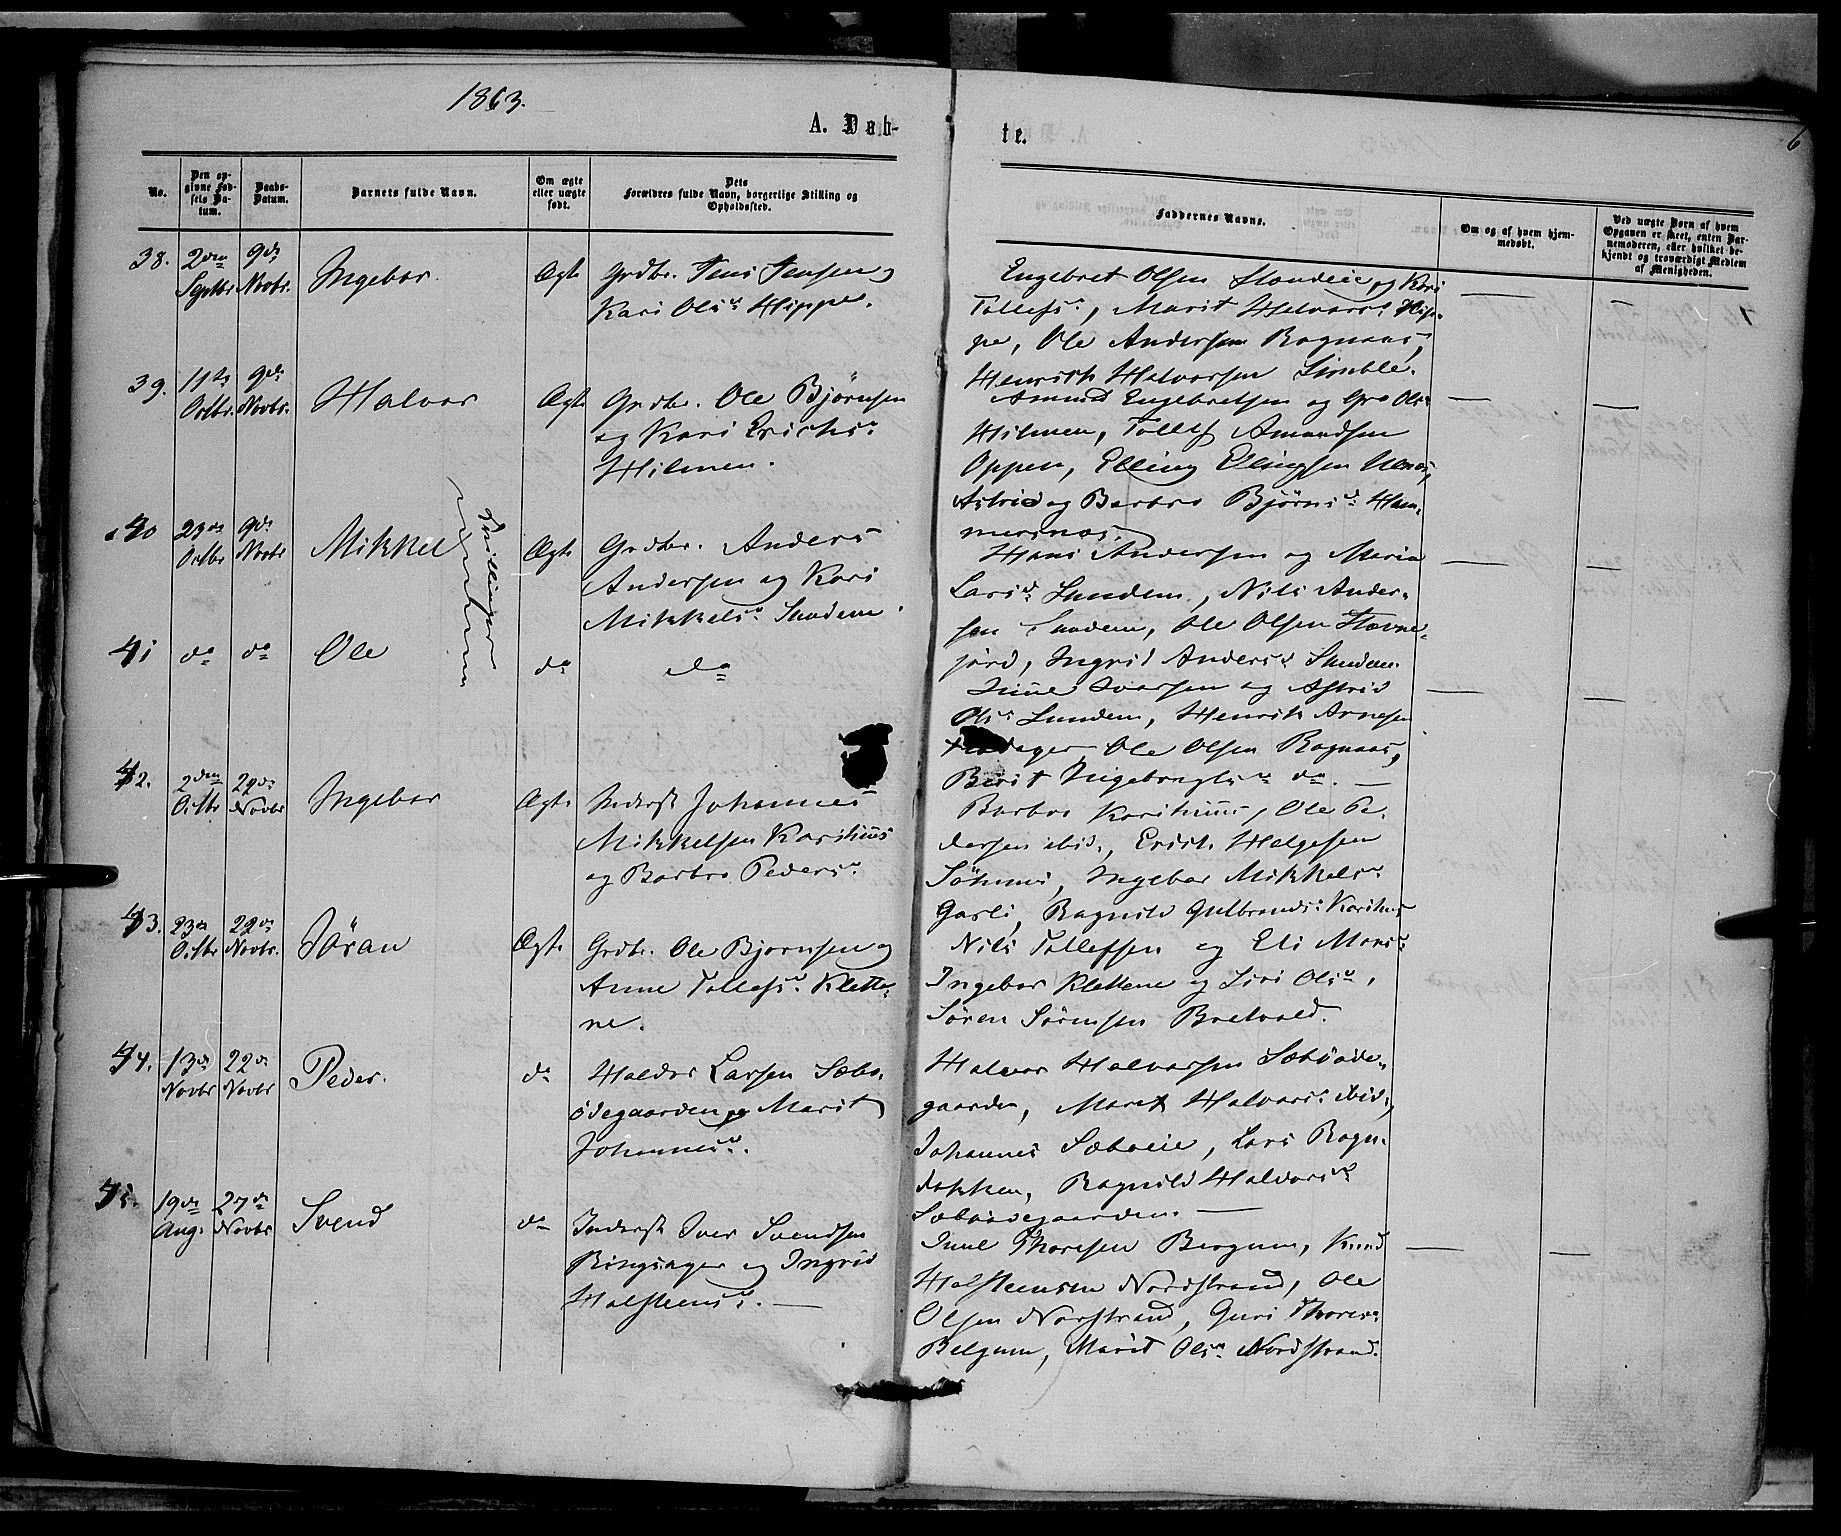 1863.
A. Døb-
No.
Den op-
givne Fød-
sels Da-
tum.
Daabs-
Datum.
Barnets fulde Navn.
Om ægte
eller uægte
født.
Dets
Forældres fulde Navn, borgerlige Stilling og
Opholdssted.
38. 2den 9de Ingebor Ægte Grdbr. Jens Jensen og
Septbr. Novbr. Kari Olsd. Hippe.
39. 11te 9de Halvor Ægte Grdbr. Ole Bjørnsen
Octbr. Novbr. og Kari Erichsd.
Hilmen.
40 23de 9de Mikkel Ægte Grdbr. Anders
Octbr Novbr Andersen og Kari
Mikkelsd. Sundem.
Tvillinger
41 do do Ole do do
42. 2den 22de Ingebor Ægte Inderst Johannes
Octbr Novbr Mikkelsen Karihuus
og Barbro Pedersd.
43. 23de 22de Jöran Ægte Grdbr. Ole Bjørnsen og
Octbr Novbr. Anne Tollefsd. Klette-
ne.
44. 13de 22de Peder. do Haldor Larsen Sæbo-
Novbr Novbr ødegaarden og Marit
Johannesd.
45. 19de 27de Svend do Inderst Iver Svendsen
Aug. Novbr Ringsager og Ingrid
Halsteensd. —
te.
6
Faddernes Navne.
Om og af hvem hjem-
medøbt.
Ved uægte Børn af hvem
Opgaven er skeet, enten Bar-
nemoderen, eller hvilket be-
kjendt og troværdigt Medlem
af Menigheden.
Engebret Olsen og Kari
Tollefsd., Marit Halvorsd. Hip-
pe, Ole Andersen Rognaas,
Henrik Halvorsen
Amund Engebretsen og Gro Olsd.
Hilmen, Tollef Amundsen
Oppen, Elling Ellingsen
Astrid og Barbro Bjørnsd. Ham-
mersnæs.
Hans Andersen og Maria
Larsd. Sundem, Nils Ander-
sen Sundem, Ole Olsen
jord, Ingrid Andersd. Sundem
Iver Iversen og Astrid
Olsd. Sundem, Henrik Arnesen
Ole Olsen Rognaas,
Berit Ingebrigtsd. do. —
Barbro Karihuus, Ole Pe-
dersen ibid., Erick Helgesen
Ingebor Mikkelsd.
Garli, Ragnild Gulbrandsd. Karihus
Nils Tollefsen og Eli
Ingebor Klettene og Siri Olsd.,
Søren Sørensen
Halvor Halvorsen Sæboøde-
gaarden, Marit Halvorsd. ibid.,
Johannes Sæboeie, Lars Rogn-
dokken, Ragnild Halvorsd.
Sæboødegaarden. —
Juul Thoresen Bergum, Knud
Halsteensen Nordstrand, Ole
Olsen Norstrand, Guri Thoresd.
Belgum, Marit Olsd. Nordstrand.